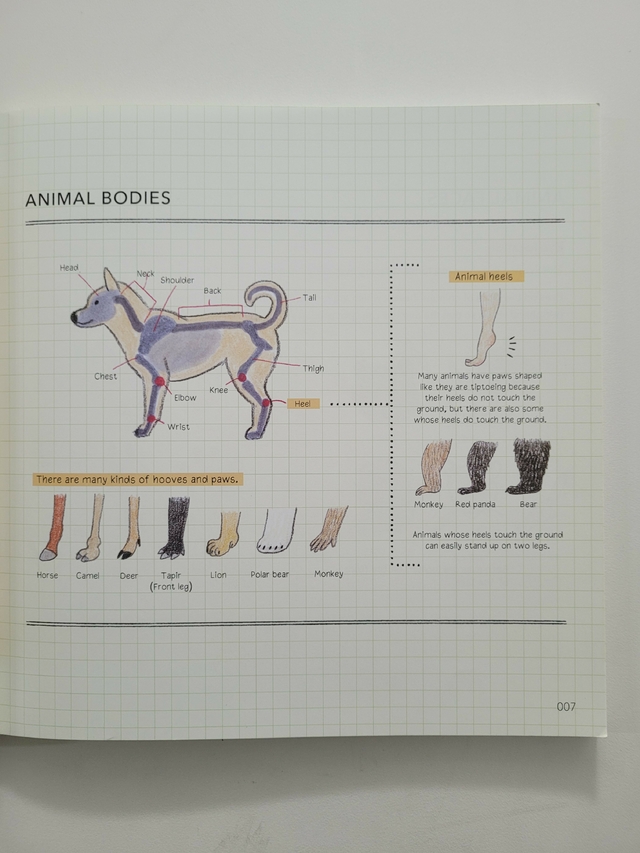 ANIMAL BODIES
Head
Neck
Shoulder
Back
Tail
Chest
Elbow
Knee
Thigh
Heel
Wrist
There are many kinds of hooves and paws.
Horse
Camel
Deer
Tapir
(Front leg)
Lion
Polar bear
Monkey
Animal heels
Many animals have paws shaped
like they are tiptoeing because
their heels do not touch the
ground, but there are also some
whose heels do touch the ground.
Monkey
Red panda
Bear
Animals whose heels touch the ground
can easily stand up on two legs.
007